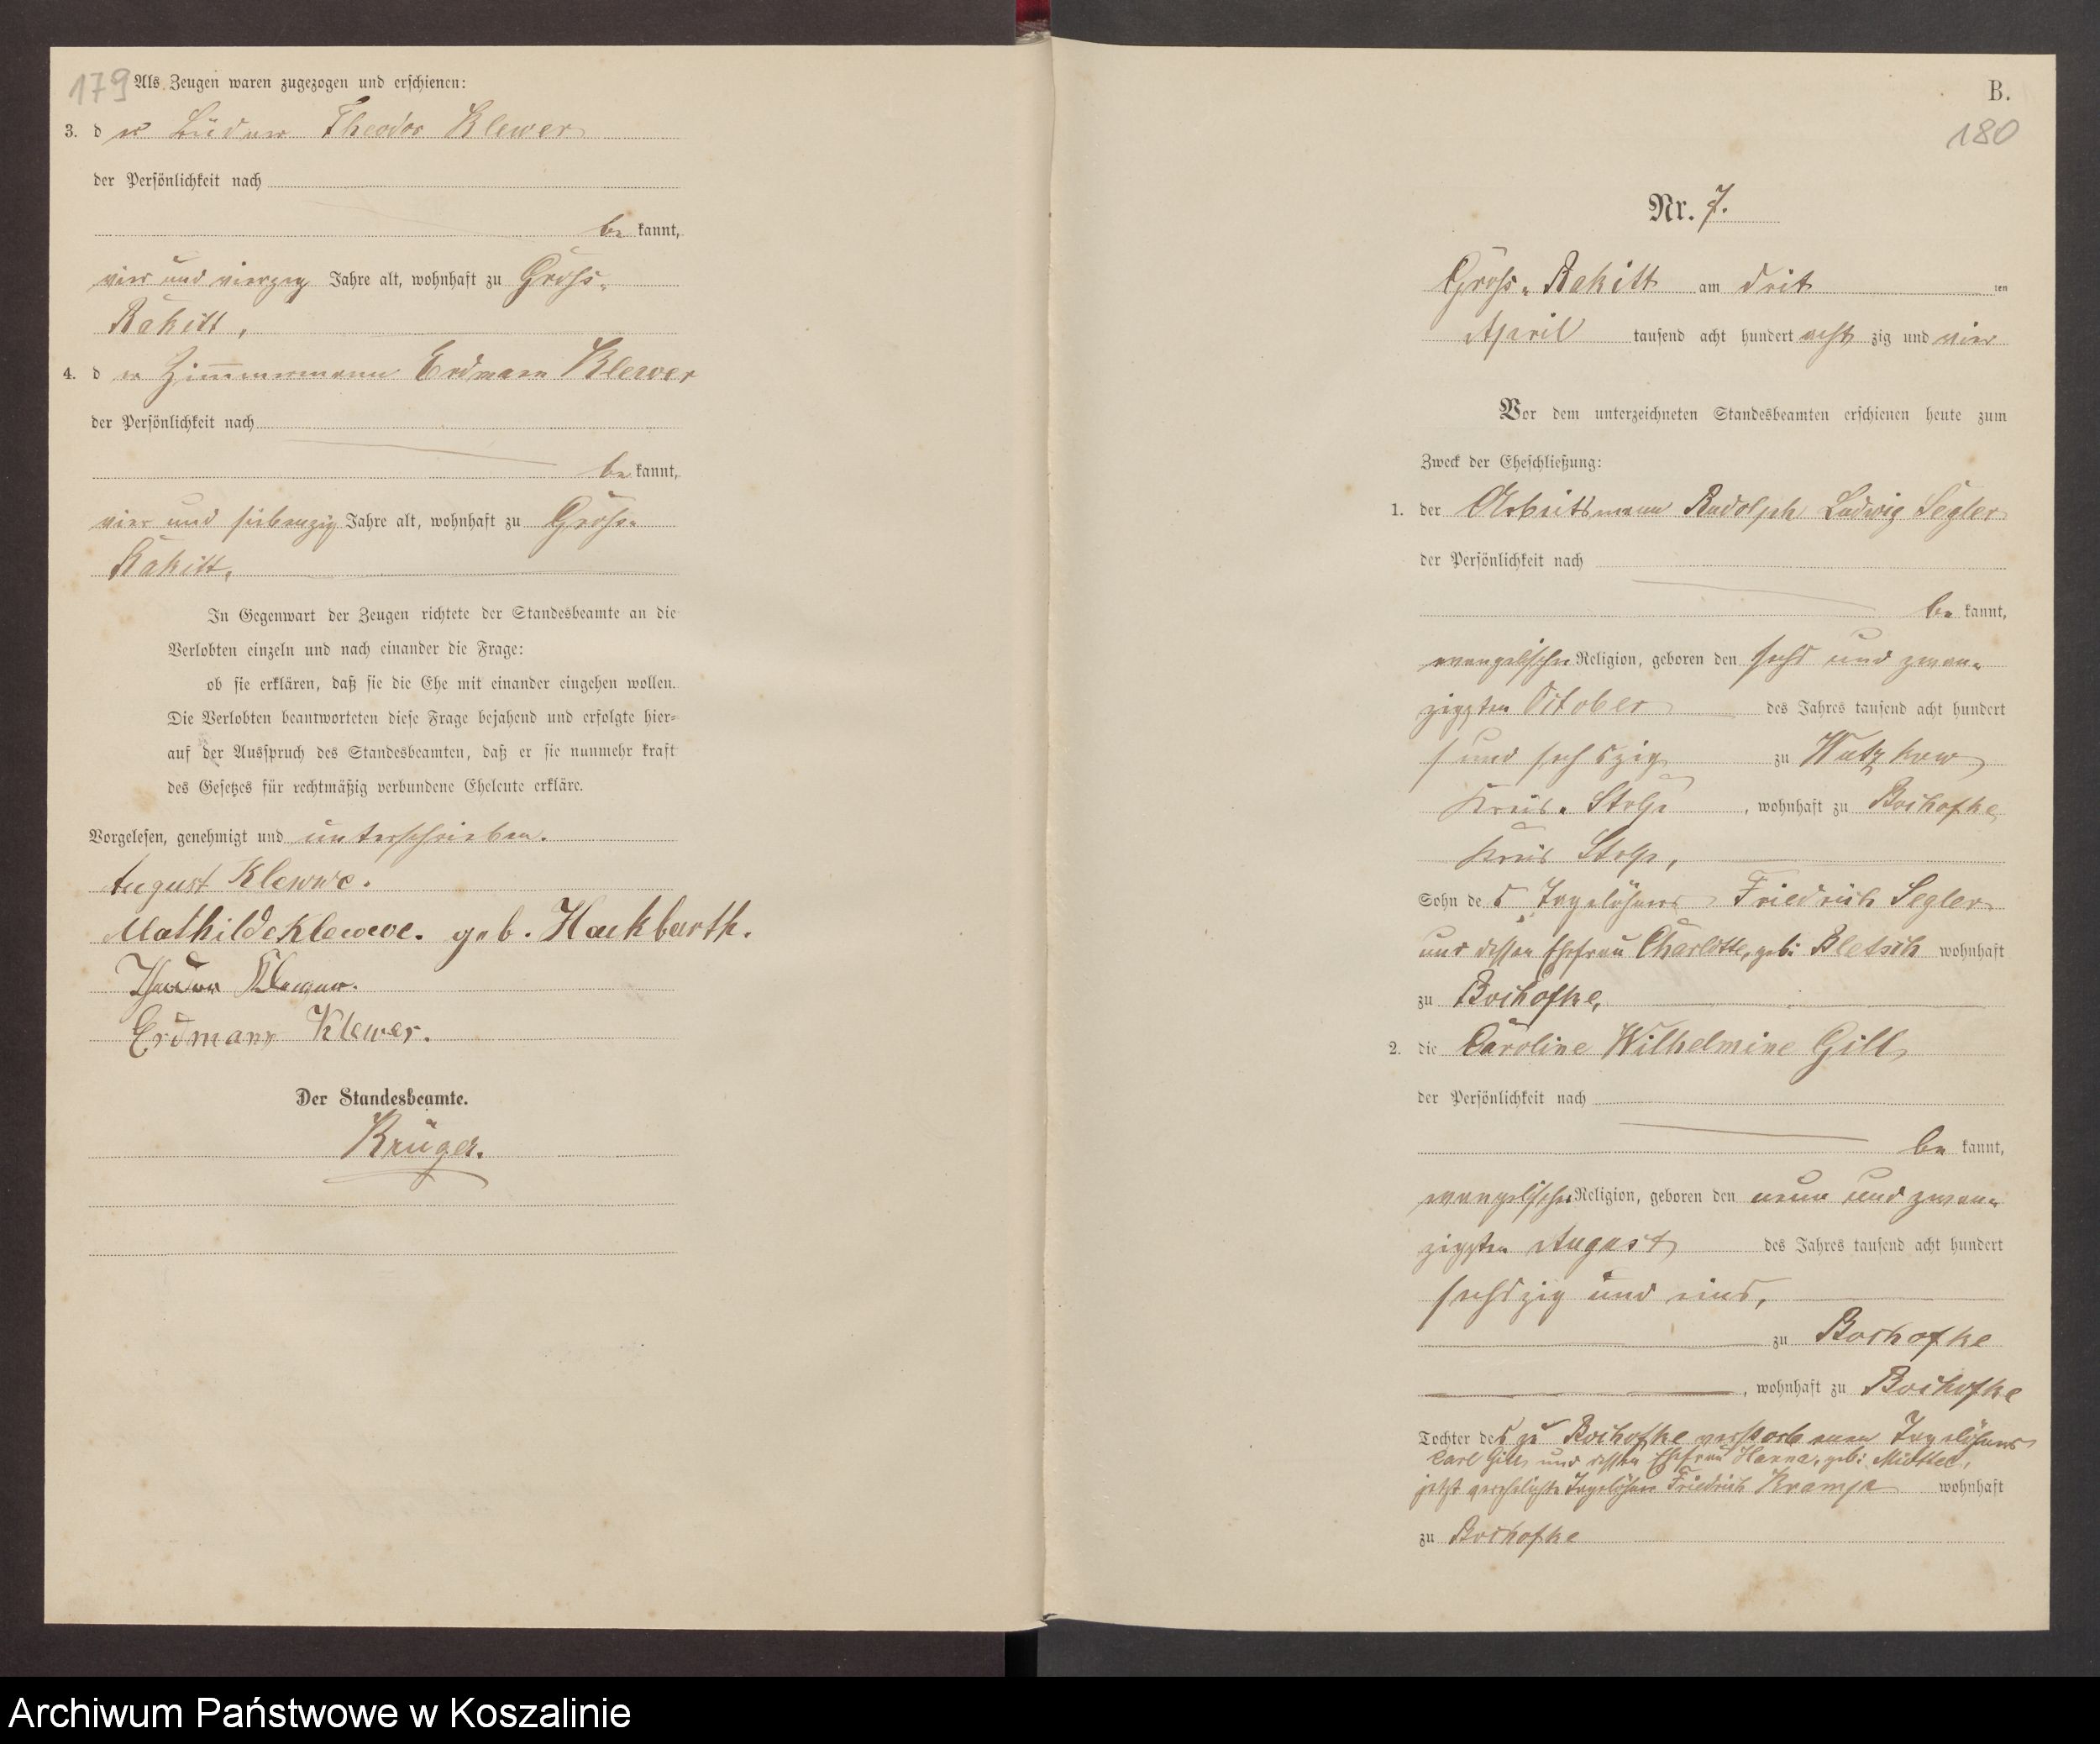 179
Als Zeugen waren zugezogen und erschienen:
3. der Büdner Theodor Klewer
der Persönlichkeit nach
be kannt,
vier und vierzig Jahre alt, wohnhaft zu Gross-
Rakitt,
4. der Zimmermann Erdmann Klewer
der Persönlichkeit nach
be kannt,
vier und siebenzig Jahre alt, wohnhaft zu Gross-
Rakitt,
In Gegenwart der Zeugen richtete der Standesbeamte an die
Verlobten einzeln und nach einander die Frage:
ob sie erklären, daß sie die Ehe mit einander eingehen wollen.
Die Verlobten beantworteten diese Frage bejahend und erfolgte hier-
auf der Ausspruch des Standesbeamten, daß er sie nunmehr kraft
des Gesetzes für rechtmäßig verbundene Eheleute erkläre.
Vorgelesen, genehmigt und unterschrieben.
August Klewwe.
Mathilde Klewwe. geb. Hackbarth.
Theodor Klewer.
Erdmann Klewer.
Der Standesbeamte.
Krüger.
B.
180
Nr. 7.
Gross-Rakitt am drit ten
April tausend acht hundert acht zig und vier
Vor dem unterzeichneten Standesbeamten erschienen heute zum
Zweck der Eheschließung:
1. der Arbeitsmann Rudolph Ludwig Segler
der Persönlichkeit nach
be kannt,
evangelischer Religion, geboren den sechs und zwan-
zigsten October des Jahres tausend acht hundert
und sechszig zu Wutzkow
Kreis Stolp, wohnhaft zu Bochofke
Kreis Stolp,
Sohn des Tagelöhners Friedrich Segler
und dessen Ehefrau Charlotte, geb: Bletsch wohnhaft
zu Bochofke,
2. die Caroline Wilhelmine Gill
der Persönlichkeit nach
be kannt,
evangelischer Religion, geboren den neun und zwan-
zigsten August des Jahres tausend acht hundert
sechszig und eins,
zu Bochofke
, wohnhaft zu Bochofke
Tochter des zu Bochofke verstorbenen Tagelöhners
Carl Gill, und dessen Ehefrau Hanna, geb:
jetzt verehelichte Tagelöhner Friedrich Kramp wohnhaft
zu Bochofke
Archiwum Państwowe w Koszalinie